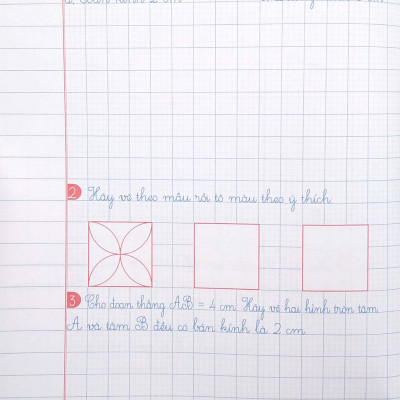 2 Hãy vẽ theo mẫu rồi tô màu theo ý thích
3 Cho đoạn thẳng AB = 4 cm Hãy vẽ hai hình tròn tâm
A và tâm B đều có bán kính là 2 cm